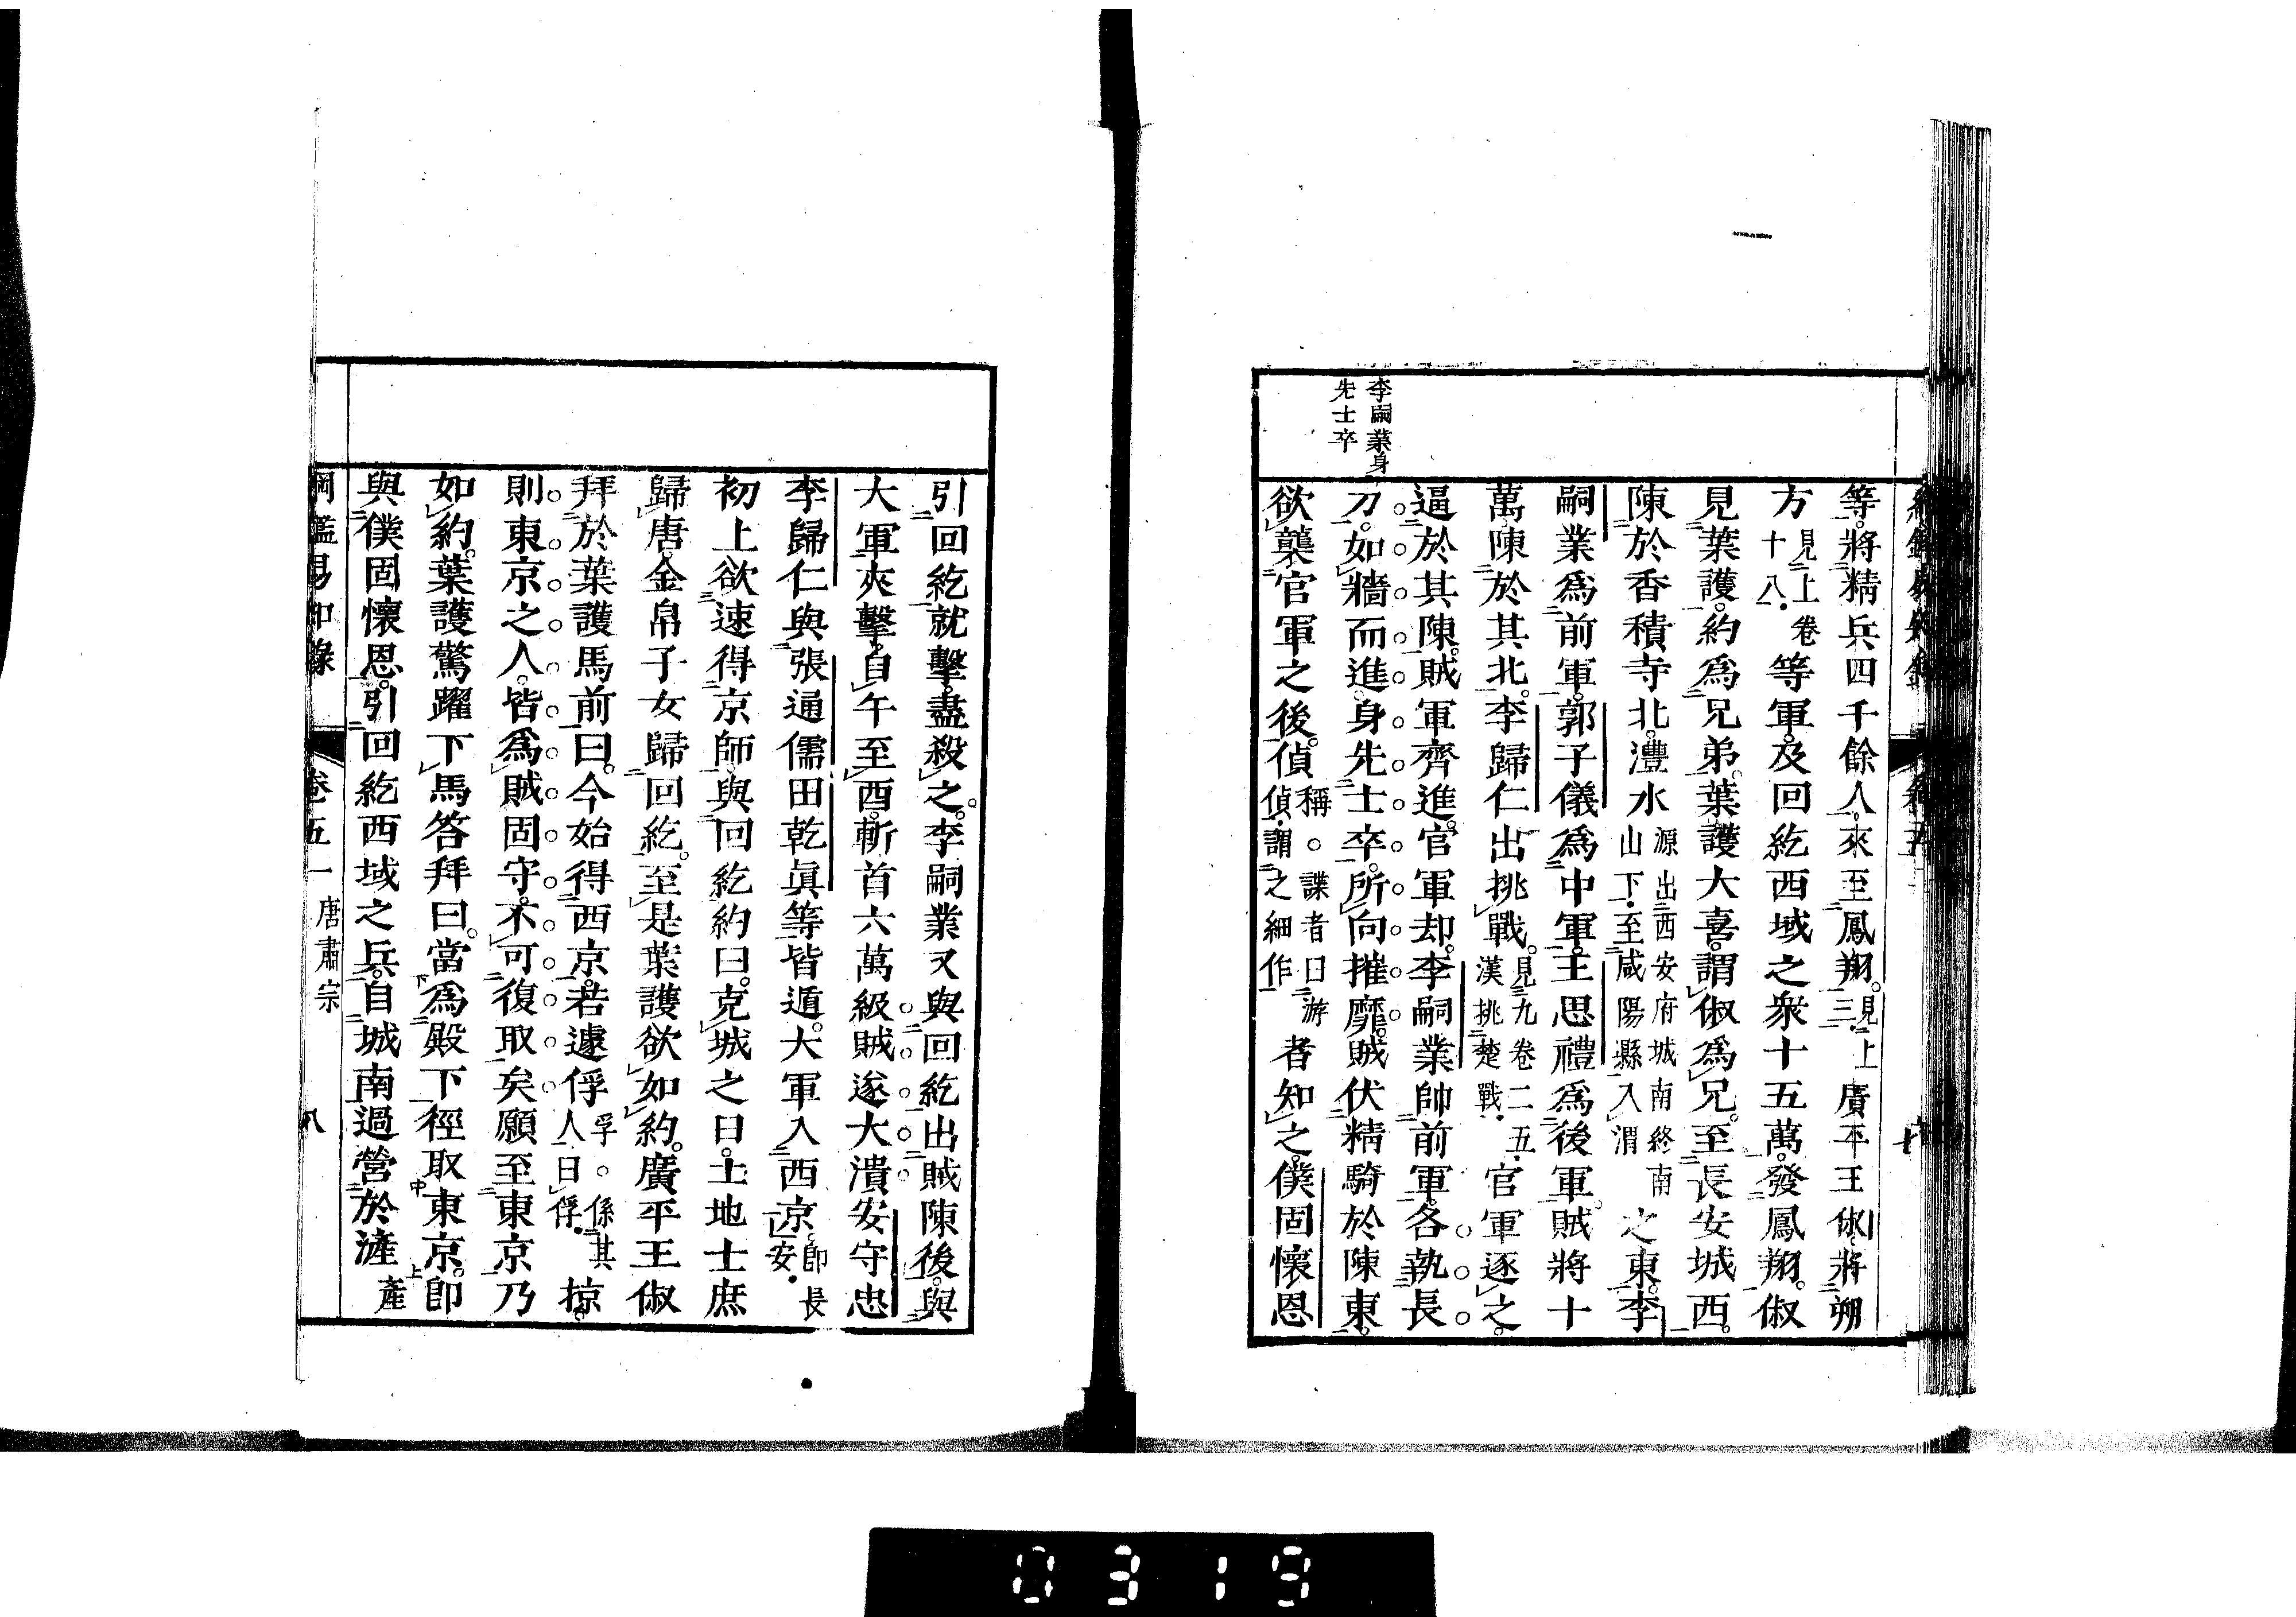 李嗣業身
先士卒
等將精兵四千餘人。來至鳳翔。見上三廣平王俶將朔
方見上卷十八等軍。及回紇西域之衆十五萬。發鳳翔。俶
見葉護。約爲兄弟。葉護大喜。謂俶爲兄。至長安城西。
陳於香積寺北。灃水源出西安府城南終南山下。至咸陽縣入渭之東。李
嗣業爲前軍。郭子儀爲中軍。王思禮爲後軍。賊將十
萬陳於其北。李歸仁出挑戰。見九卷二五漢挑楚戰官軍逐之。
逼於其陳。賊軍齊進。官軍却。李嗣業帥前軍。各執長
刀。如牆而進。身先士卒。所向摧靡。賊伏精騎於陳東。
欲襲官軍之後。偵稱。諜者曰游偵。謂之細作者知之。僕固懷恩
引回紇就擊。盡殺之。李嗣業又與回紇出賊陳後。與
大軍夾擊。自午至酉。斬首六萬級。賊遂大潰。安守忠
李歸仁與張通儒田乾眞等皆遁。大軍入西京。卽長安。
初上欲速得京師。與回紇約曰。克城之日。土地士庶
歸唐。金帛子女歸回紇。至是葉護欲如約。廣平王俶
拜於葉護馬前曰。今始得西京。若遽俘孚。係其人曰俘。掠。
則東京之人。皆爲賊固守。不可復取矣。願至東京乃
如約。葉護驚躍下馬答拜曰。當爲殿下徑取東京。卽
與僕固懷恩。引回紇西域之兵。自城南過營於滻產
綱鑑易知錄 卷五一 唐肅宗 八
0319